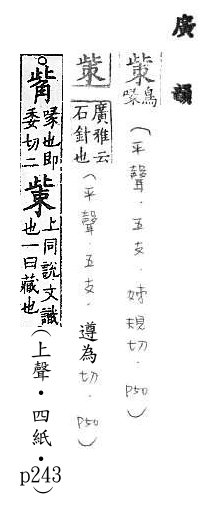 廣韻
㭰鳥喙(平聲．五支．姊規切．P50)
㭰廣雅云石針也(平聲．五支．遵為切．P50)
觜喙也即委切二㭰上同說文識也一曰藏也(上聲．四紙．p243)